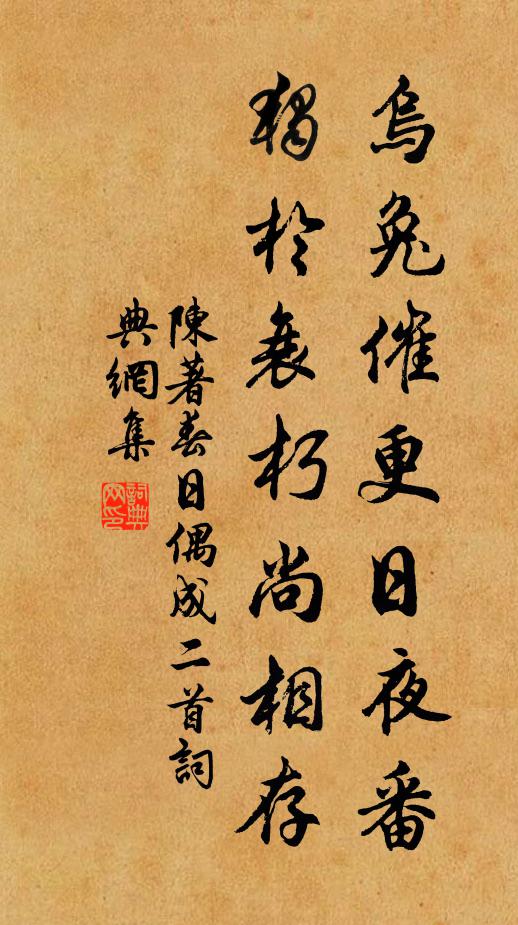 烏兔催更日夜番
獨於衰朽尚相存
陳著春日偶成二首詞
典網集
詞典
网印